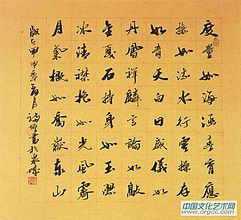 度量如海涵春育應
接如流水行雲操存
如青天白日威儀如
丹鳳祥麟言論如敲
金戛石持身如玉潔
冰清襟抱如光風霽
月氣概如喬嶽泰山
中国文化产业网